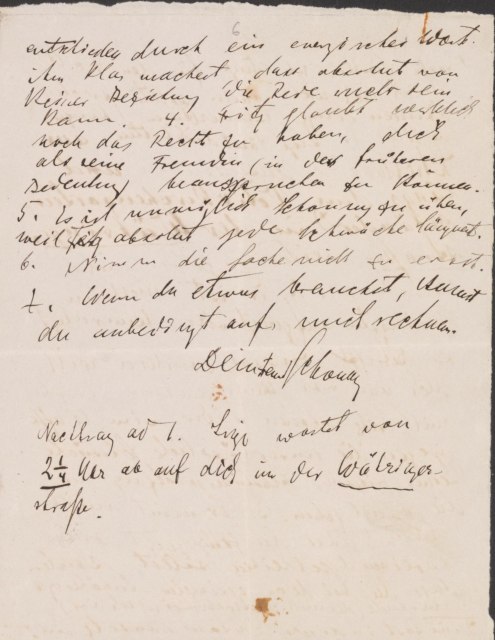 6
entschieden durch ein energisches Wort.
ihm klar machest, dass absolut von
keiner Beziehung die Rede mehr sein
kann. 4. Fritz glaubt wirklich
noch das Recht zu haben, dich
als seine Freundin (in der früheren
Bedeutung beanspruchen zu können.
5. Es ist unmöglich Schonung zu üben,
weil Fritz absolut jede Schwäche läugnet.
6. Nimm die Sache nicht zu ernst.
7. Wenn du etwas brauchst, kannst
du unbedingt auf mich rechnen.
Dein
Nachtrag ad 1. wartet von
2 1/4 Uhr ab auf dich in der Währinger-
straße.